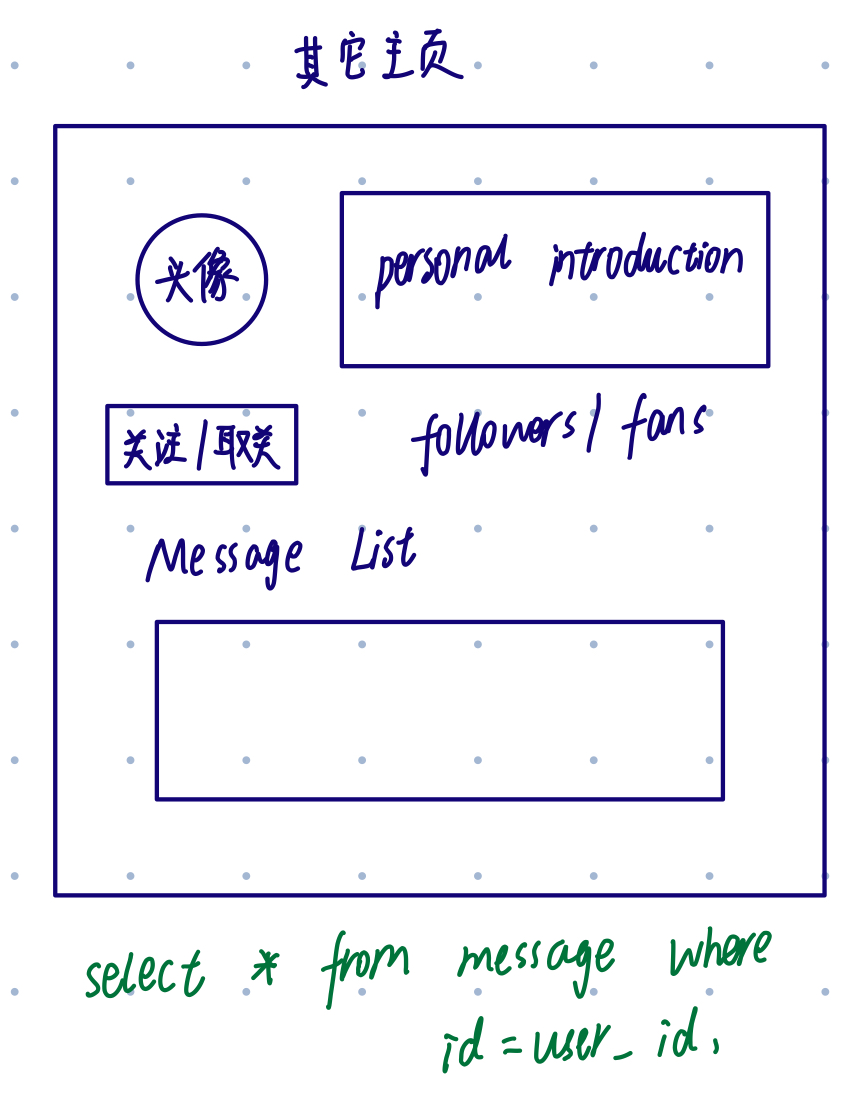 其它主页
头像
personal introduction
关注/取关
followers/ fans
Message List
select * from message where
id = user_id,